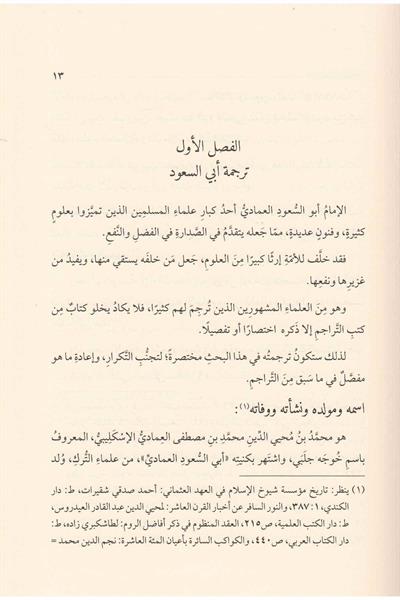 ١٣
الفصل الأول
ترجمة أبي السعود
الإمامُ أبو السُّعودِ العماديُّ أحدُ كبارِ علماءِ المسلمِين الذين تميَّزوا بعلومٍ
كثيرةٍ، وفنونٍ عديدةٍ، ممّا جَعله يتقدَّمُ في الصَّدارةِ في الفضلِ والنَّفعِ.
فقد خلَّف للأمّةِ إرثًا كبيرًا مِنَ العلومِ، جَعل مَن خلفَه يستقي منها، ويفيد من
غزيرِها ونفعِها.
وهو مِنَ العلماءِ المشهورِين الذين تُرجِمَ لهم كثيرًا، فلا يكادُ يخلو كتابٌ مِن
كتبِ التَّراجمِ إلا ذَكره اختصارًا أو تفصيلًا.
لذلك ستكونُ ترجمتُه في هذا البحثِ مختصرةً؛ لتجنُّبِ التَّكرارِ، وإعادةِ ما هو
مفصَّلٌ في ما سَبق مِنَ التَّراجمِ.
اسمه ومولده ونشأته ووفاته(١):
هو محمَّدُ بنُ مُحيي الدِّينِ محمَّدِ بنِ مصطفى العِماديُّ الإسْكَلِيبيُّ، المعروفُ
باسمِ خُوجَه جلَبَي، واشتهر بكنيتِه «أبي السُّعودِ العماديِّ»، من علماءِ التُّركِ، وُلد
(١) ينظر: تاريخ مؤسسة شيوخ الإسلام في العهد العثماني: أحمد صدقي شقيرات، ط: دار
الكندي، ١: ٣٨٧، والنور السافر عن أخبار القرن العاشر: لمحيي الدين عبد القادر العيدروس،
ط: دار الكتب العلمية، ص٢١٥، العقد المنظوم في ذكر أفاضل الروم: لطاشكبري زاده، ط:
دار الكتاب العربي، ص٤٤٠، والكواكب السائرة بأعيان المئة العاشرة: نجم الدين محمد =